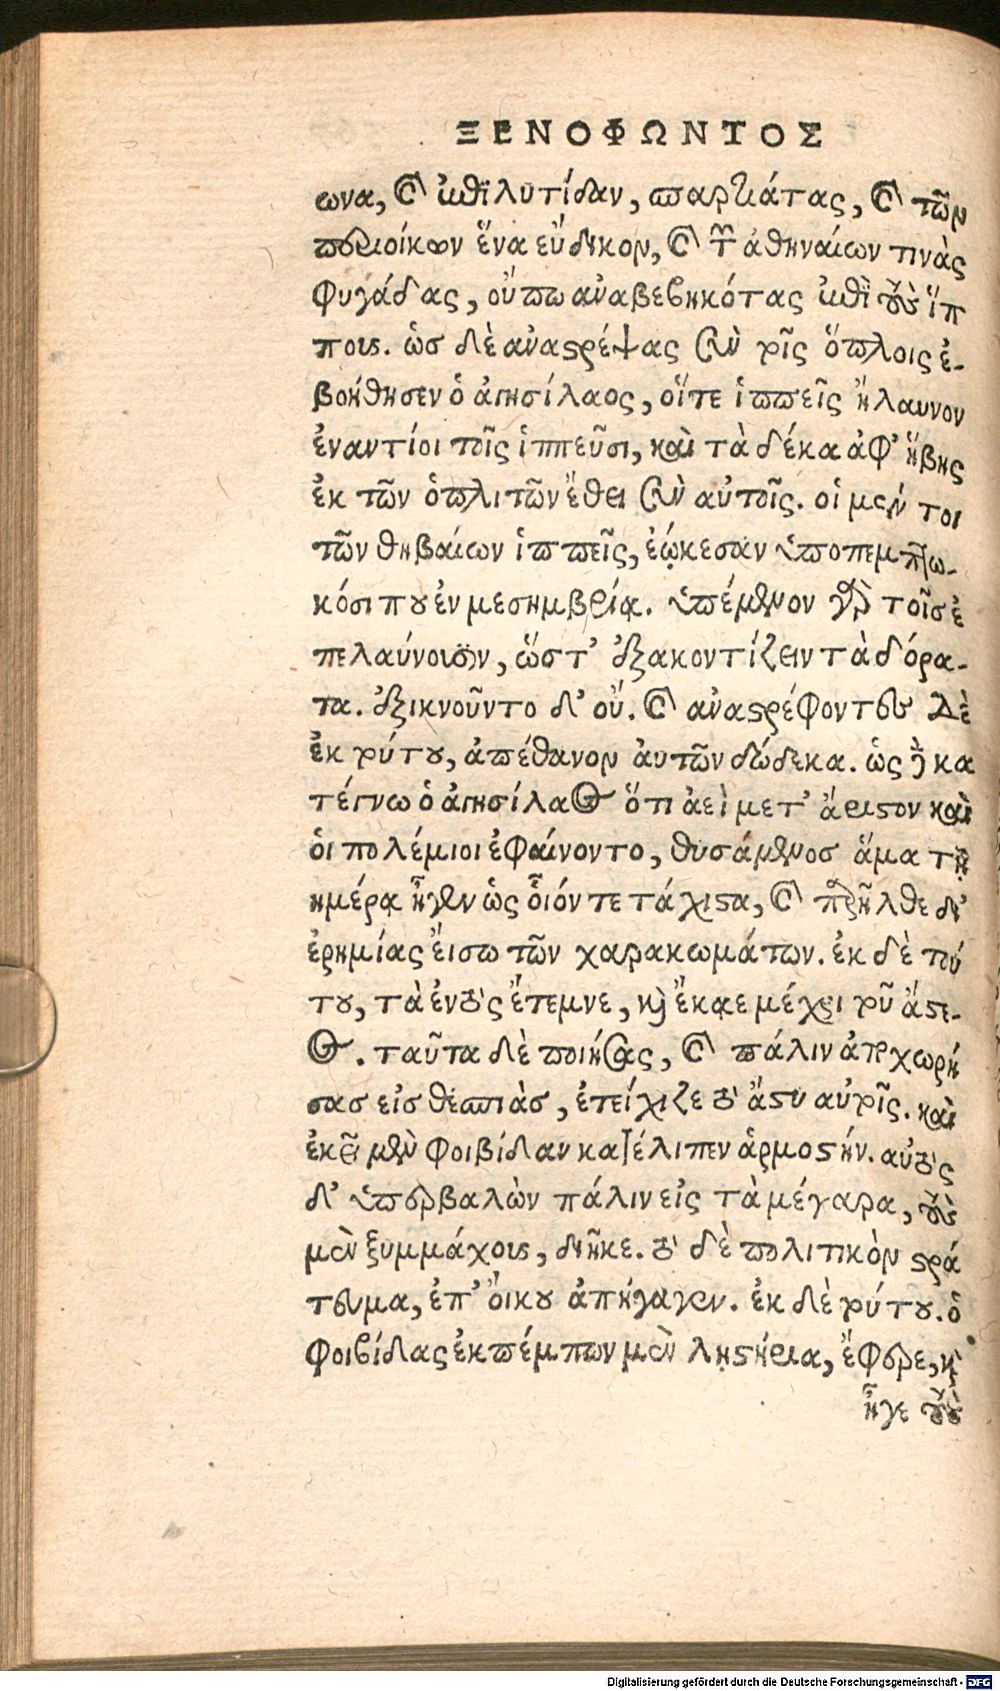 ΞΕΝΟΦΩΝΤΟΣ
ωνα, καὶ ἐπιλυτίδαν, σπαρτιάτας, καὶ τῶν
περιοίκων ἕνα εὔδικον, καὶ τῶν ἀθηναίων τινὰς
φυγάδας, οὔπω ἀναβεβηκότας ἐπὶ τοὺς ἵπ
πους. ὡσ δὲ ἀναστρέψας σὺν τοῖς ὅπλοις ἐ-
βοήθησεν ὁ ἀγησίλαος, οἵτε ἱππεῖς ἤλαυνον
ἐναντίοι τοῖς ἱππεῦσι, καὶ τὰ δέκα ἀφ' ἥβης
ἐκ τῶν ὁπλιτῶν ἔθει σὺν αὐτοῖς. οἱ μέν τοι
τῶν θηβαίων ἱππεῖς, ἐῴκεσαν ὑποπεπτω-
κόσι που ἐν μεσημβρίᾳ. ὑπέμενον γὰρ τοῖσ ἐ
πελαύνουσιν, ὥστ' ἐξακοντίζειν τὰ δόρα-
τα. ἐξικνοῦντο δ' οὔ. καὶ ἀναστρέφοντες δὲ
ἐκ τούτου, ἀπέθανον αὐτῶν δώδεκα. ὡς δὲ κα
τέγνω ὁ ἀγησίλαος ὅτι ἀεὶ μετ' ἄριστον καὶ
οἱ πολέμιοι ἐφαίνοντο, θυσάμενοσ ἅμα τῇ
ημέρᾳ ἦγεν ὡς οἷόν τε τάχιστα, καὶ παρῆλθε δι'
ἐρημίας εἴσω τῶν χαρακωμάτων. ἐκ δὲ τού
του, τὰ ἐντὸς ἔτεμνε, καὶ ἔκαιε μέχρι τοῦ ἄστε-
ος. ταῦτα δὲ ποιήσας, καὶ πάλιν ἀποχωρή
σασ εἰσ θεσπιὰσ, ἐτείχιζε τὸ ἄστυ αὐτοῖς. καὶ
ἐκεῖ μὲν φοιβίδαν κατέλιπεν ἁρμοστήν. αὐτὸς
δ' ὑπερβαλὼν πάλιν εἰς τὰ μέγαρα, τοὺς
μὲν ξυμμάχους, διῆκε. τὸ δὲ πολιτικὸν στρά
τευμα, ἐπ' οἴκου ἀπήγαγεν. ἐκ δὲ τούτου. ὁ
φοιβίδας ἐκπέμπων μὲν λῃστήρια, ἔφερε, καὶ
ἦγε τοὺς
Digitalisierung gefördert durch die Deutsche Forschungsgemeinschaft - DFG